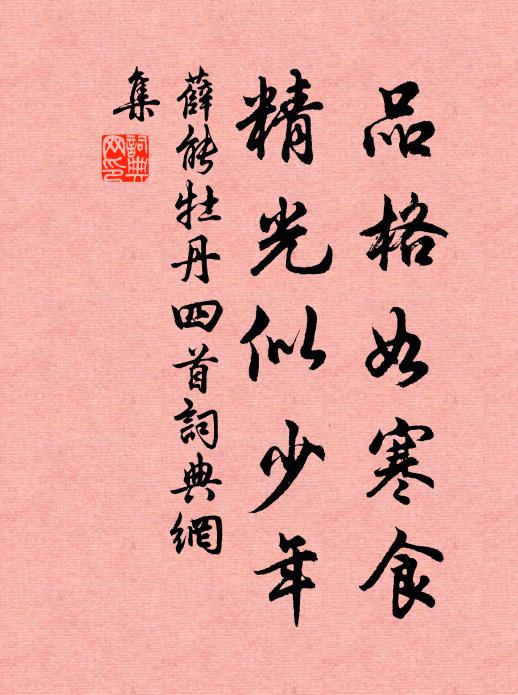 品格如寒食
精光似少年
薛能牡丹四首詞典網
集
詞典網印